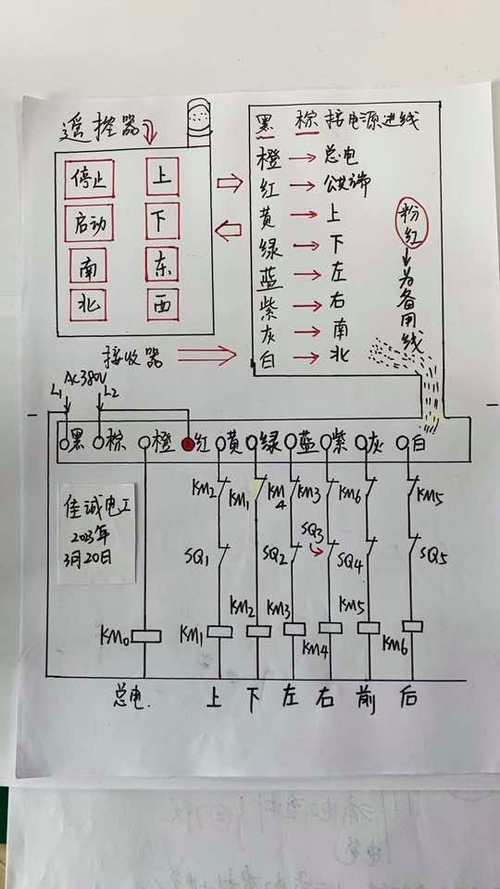 遥控器
停止 上
启动 下
南 东
北 西
黑 棕 接电源进线
橙→总电
红→公共端
黄→上
绿→下
蓝→左
紫→右
灰→南
白→北
粉红→为备用线
接收器
AC380V
L1 L2
黑 棕 橙 红 黄 绿 蓝 紫 灰 白
KM2 KM1 KM4 KM3 KM6 KM5
佳诚电工
2023年
3月20日
SQ1 SQ2 SQ3 SQ4 SQ5
KM0 KM1 KM2 KM3 KM4 KM5 KM6
总电 上 下 左 右 前 后